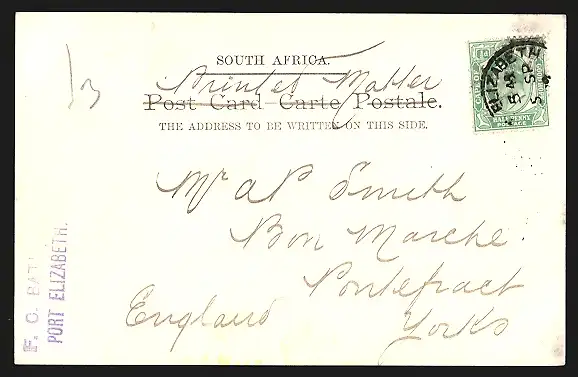 SOUTH AFRICA.
Printed Matter
Post Card Carte Postale.
THE ADDRESS TO BE WRITTEN ON THIS SIDE.
HALF PENNY
POSTAGE
ELIZABETH
SP
Mr A P Smith
Bon Marche.
Pontefract
England
Yorks
F. O. BAT
PORT ELIZABETH.